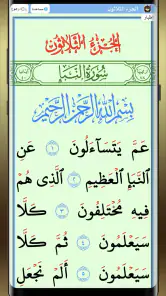 الجزء الثلاثون
الجُزْءُ الثَّلَاثُونَ
سُورَةُ النَّبَأ
بِسْمِ اللَّهِ الرَّحْمَٰنِ الرَّحِيمِ
عَمَّ يَتَسَآءَلُونَ ١ عَنِ
النَّبَإِ الْعَظِيمِ ٢ الَّذِى هُمْ
فِيهِ مُخْتَلِفُونَ ٣ كَلَّا
سَيَعْلَمُونَ ٤ ثُمَّ كَلَّا
سَيَعْلَمُونَ ٥ أَلَمْ نَجْعَلِ